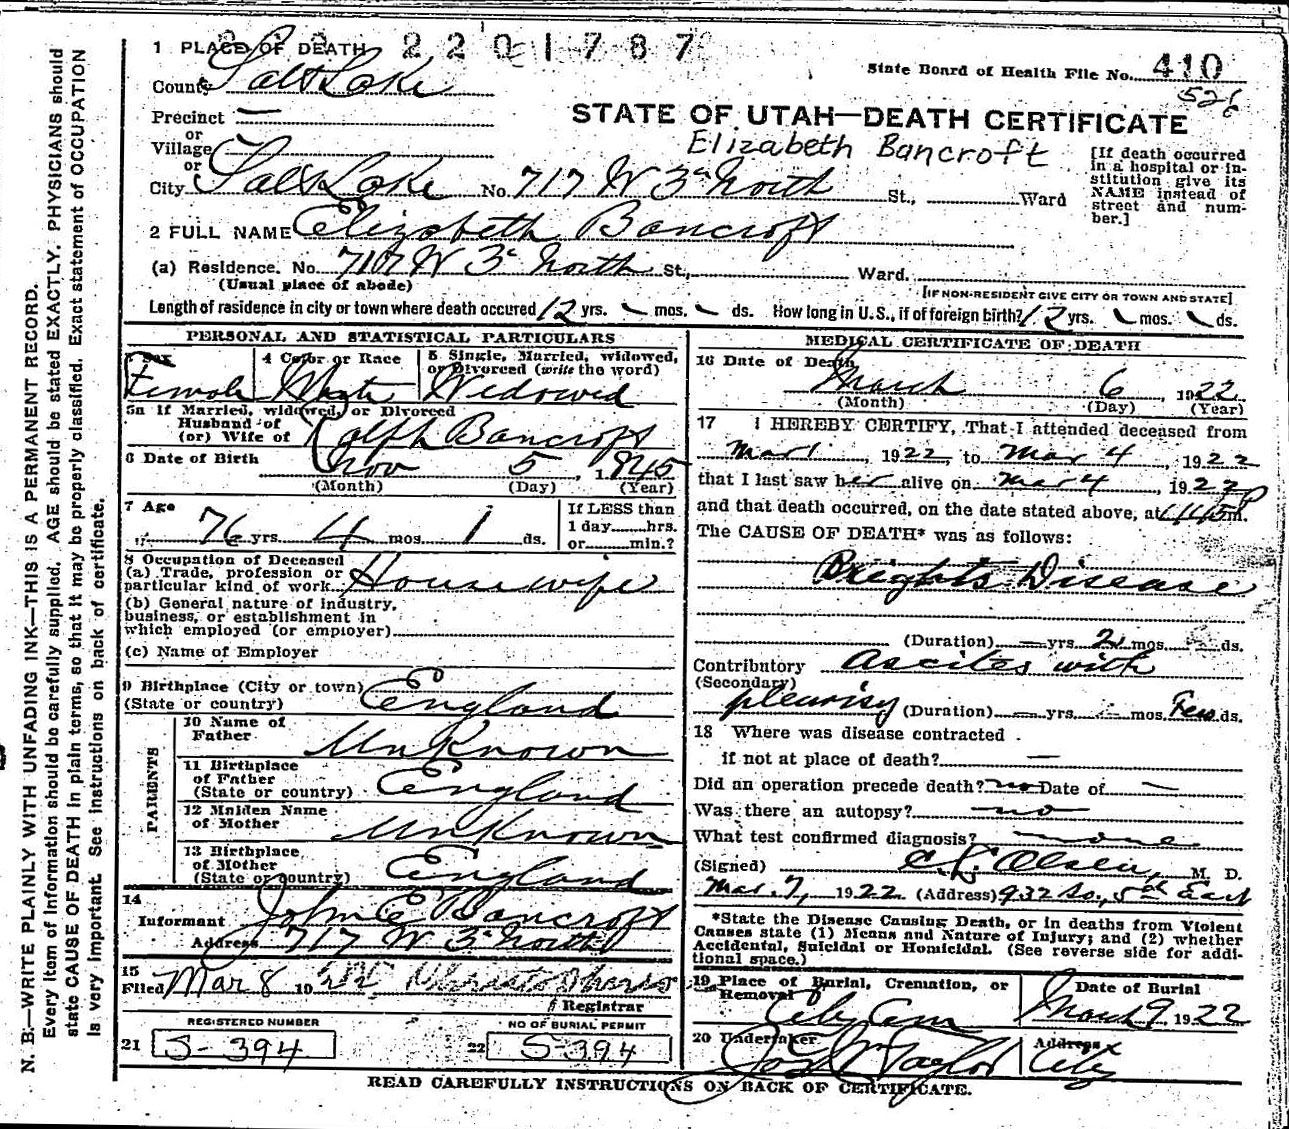 2201787
1 PLACE OF DEATH
State Board of Health File No. 410
County Salt Lake
528
Precinct —
STATE OF UTAH—DEATH CERTIFICATE
or
Village
Elizabeth Bancroft
or
City Salt Lake No. 717 W 3d North St., Ward
[If death occurred in a hospital or institution give its NAME instead of street and number.]
2 FULL NAME Elizabeth Bancroft
(a) Residence. No. 717 W 3d North St., Ward.
(Usual place of abode)
[IF NON-RESIDENT GIVE CITY OR TOWN AND STATE]
Length of residence in city or town where death occured 12 yrs. mos. ds. How long in U.S., if of foreign birth? 12 yrs. mos. ds.
PERSONAL AND STATISTICAL PARTICULARS
Sex
Female
4 Color or Race
White
5 Single, Married, widowed,
or Divorced (write the word)
Widowed
5a If Married, widowed, or Divorced
Husband of
(or) Wife of Ralph Bancroft
6 Date of Birth Nov 5, 1845
(Month) (Day) (Year)
7 Age 76 yrs. 4 mos. 1 ds.
If LESS than
1 day......hrs.
or......min.?
8 Occupation of Deceased
(a) Trade, profession or
particular kind of work Housewife
(b) General nature of industry,
business, or establishment in
which employed (or employer)
(c) Name of Employer
9 Birthplace (City or town)
(State or country) England
PARENTS
10 Name of
Father Unknown
11 Birthplace
of Father
(State or country) England
12 Maiden Name
of Mother Unknown
13 Birthplace
of Mother
(State or country) England
14
Informant John E Bancroft
Address 717 W 3d North
15
Filed Mar 8 1922
Registrar
REGISTERED NUMBER
21 S-394
NO OF BURIAL PERMIT
22 S394
MEDICAL CERTIFICATE OF DEATH
16 Date of Death
March 6, 1922
(Month) (Day) (Year)
17 I HEREBY CERTIFY, That I attended deceased from
Mar 1, 1922, to Mar 4, 1922
that I last saw her alive on Mar 4, 1922
and that death occurred, on the date stated above, at m.
The CAUSE OF DEATH* was as follows:
Brights Disease
(Duration) — yrs. 2 mos. ds.
Contributory Ascites with
(Secondary)
pleurisy (Duration) — yrs. mos. Few ds.
18 Where was disease contracted
if not at place of death? —
Did an operation precede death? no Date of —
Was there an autopsy? no
What test confirmed diagnosis? none
(Signed) C. L. Olsen, M. D.
Mar. 7, 1922 (Address) 932 So., 5th East
*State the Disease Causing Death, or in deaths from Violent
Causes state (1) Means and Nature of Injury; and (2) whether
Accidental, Suicidal or Homicidal. (See reverse side for addi-
tional space.)
19 Place of Burial, Cremation, or
Removal
City Cem
Date of Burial
March 9, 1922
20 Undertaker
Jos Wm Taylor
Address
City
READ CAREFULLY INSTRUCTIONS ON BACK OF CERTIFICATE.
N. B.—WRITE PLAINLY WITH UNFADING INK—THIS IS A PERMANENT RECORD.
Every item of information should be carefully supplied. AGE should be stated EXACTLY. PHYSICIANS should
state CAUSE OF DEATH in plain terms, so that it may be properly classified. Exact statement of OCCUPATION
is very important. See instructions on back of certificate.